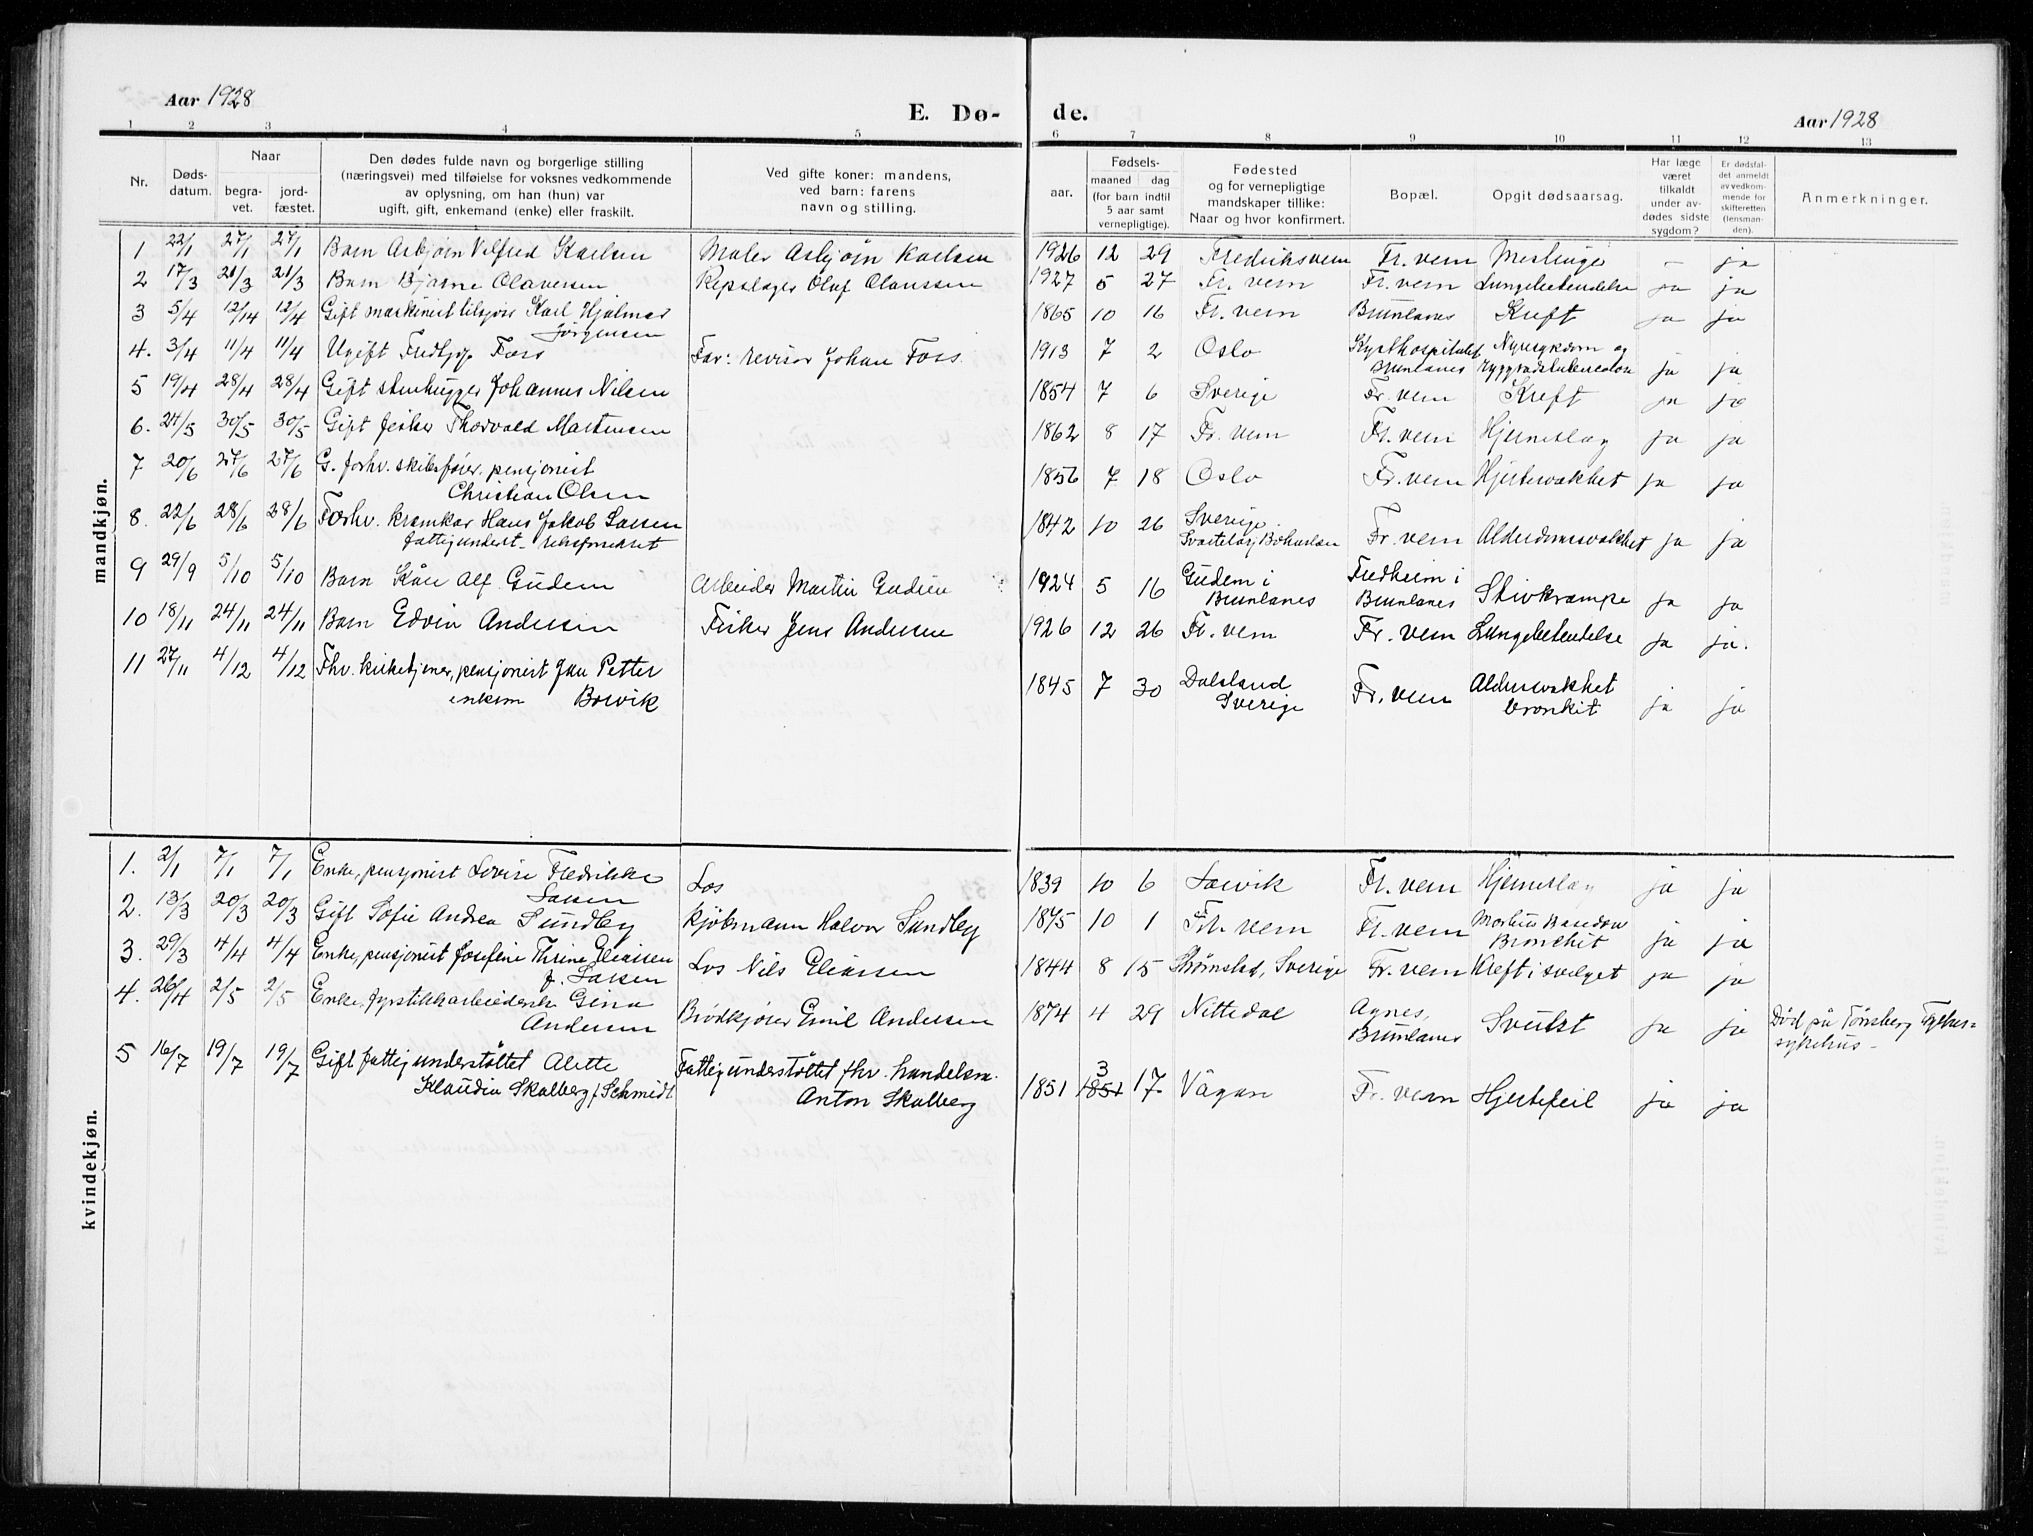 Aar 1928
E. Dø-
de.
Aar 1928
1 2 3 4 5 6 7 8 9 10 11 12 13
Nr.
Døds-
datum.
Naar
begra-
vet.
jord-
fæstet.
Den dødes fulde navn og borgerlige stilling
(næringsvei) med tilføielse for voksnes vedkommende
av oplysning, om han (hun) var
ugift, gift, enkemand (enke) eller fraskilt.
Ved gifte koner: mandens,
ved barn: farens
navn og stilling.
aar.
Fødsels-
maaned dag
(for barn indtil
5 aar samt
vernepligtige).
Fødested
og for vernepligtige
mandskaper tillike:
Naar og hvor konfirmert.
Bopæl.
Opgit dødsaarsag.
Har læge
været
tilkaldt
under av-
dødes sidste
sygdom?
Er dødsfal-
det anmeldt
av vedkom-
mende for
skifteretten
(lensman-
den).
Anmerkninger.
mandkjøn.
1 22/1 27/1 27/1 Barn Asbjørn Vilfred Karlsen Maler Asbjørn Karlsen 1926 12 29 Fredriksvern Fr. vern Meslinger - ja
2 17/3 21/3 21/3 Barn Bjarne Olavesen Repslager Olaf Olaussen 1927 5 27 Fr. vern Fr. vern Lungebetendelse ja ja
3 5/4 12/4 12/4 Gift maskinist tilsjøs Karl Hjalmar
Jørgensen 1865 10 16 Fr. vern Brunlanes Kreft ja ja
4. 3/4 11/4 11/4 Ugift Fredtjof Foss Far: revisor Johan Foss. 1913 7 2 Oslo Kysthospitalet Nyresykdom og
Brunlanes ja ja
5 19/4 28/4 28/4 Gift stenhugger Johannes Nilsen 1854 7 6 Sverige Fr. vern Kreft ja ja
6. 24/5 30/5 30/5 Gift fisker Thorvald Martinsen 1862 8 17 Fr. vern Fr. vern Hjerneslag ja ja
7 20/6 27/6 27/6 G. forhv. skibsfører. pensjonist
Christian Olsen 1856 7 18 Oslo Fr. vern Hjertesvakhet ja ja
8. 22/6 28/6 28/6 Forhv. kramkar Hans Jakob Larsen
fattigunderst. 1842 10 26 Sverige
Bohuslen Fr. vern Alderdomssvakhet ja ja
9 29/9 5/10 5/10 Barn Kåre Alf Gudem Arbeider Martin Gudem 1924 5 16 Gudem i
Brunlanes Fredheim i
Brunlanes Stivkrampe ja ja
10 18/11 24/11 24/11 Barn Edvin Andersen Fisker Jens Andersen 1926 12 26 Fr. vern Fr. vern Lungebetendelse ja ja.
11 27/11 4/12 4/12 Fhv. kirketjener, pensjonist Jan Petter
enkem Borvik 1845 7 30 Dalsland
Sverige Fr. vern Alderssvakhet
bronkit ja ja
kvindekjøn.
1. 2/1 7/1 7/1 Enke, pensjonist Lovise Fredrikke
Larsen Los 1839 10 6 Larvik Fr. vern Hjerneslag ja ja
2. 13/3 20/3 20/3 Gift Sofie Andrea Sundby Kjøbmann Halvor Sundby 1875 10 1 Fr. vern Fr. vern Morbus Basedow
Bronchit ja ja
3. 29/3 4/4 4/4 Enke, pensjonist Josefine Thrine Eliassen
f. Larsen Los Nils Eliassen 1844 8 15 Strømstad, Sverige Fr. vern Kreft i svelget ja ja
4. 26/4 2/5 2/5 Enke, fyrstikkarbeiderske Gina
Andersen Brødkjører Emil Andersen 1874 4 29 Nittedal Agnes,
Brunlanes Svulst ja ja Død på Tønsberg Fylkes=
sykehus -
5 16/7 19/7 19/7 Gift fattigunderstøttet Alette
Klaudia Skalberg f. Schmidt Fattigunderstøttet fhv. handelsm.
Anton Skalberg 1851 3 1851 17 Vågan Fr. vern Hjertefeil ja ja